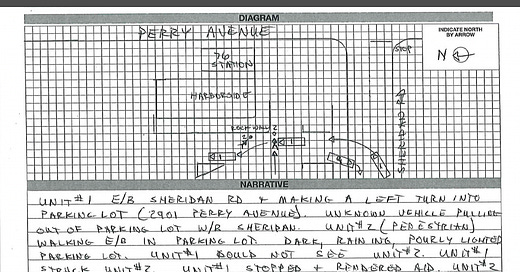 DIAGRAM
PERRY AVENUE
INDICATE NORTH
BY ARROW
N
STOP
76
STATION
NARRATIVE
UNIT#1 E/B SHERIDAN RD + MAKING A LEFT TURN INTO
PARKING LOT (2901 PERRY AVENUE). UNKNOWN VEHICLE PULLING
OUT OF PARKING LOT W/B SHERIDAN. UNIT#2 (PEDESTRIAN)
WALKING E/B IN PARKING LOT DARK, RAINING, POURLY LIGHTED
PARKING LOT. UNIT#1 COULD NOT SEE UNIT#2. UNIT#1
STRUCK UNIT#2. UNIT#1 STOPPED + RENDERED AID. UNIT#2